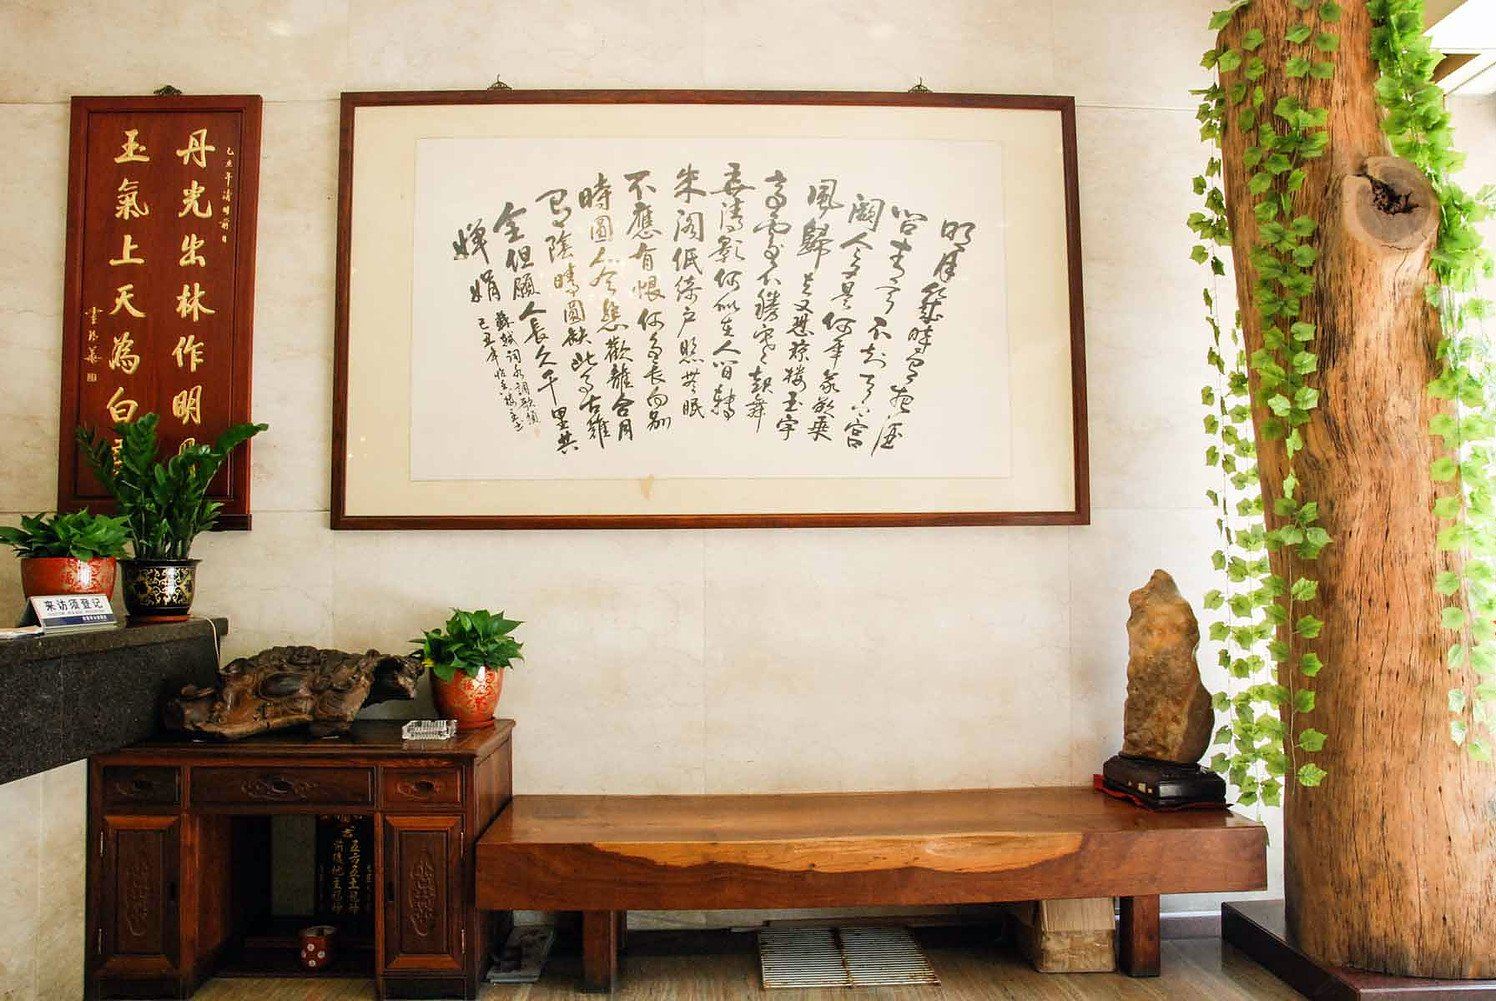 明月幾時有把酒
問青天不知天上宮
闕今夕是何年我欲乘
風歸去又恐琼樓玉宇
高處不勝寒起舞
弄清影何似在人間轉
朱閣低綺戶照無眠
不應有恨何事長向別
時圓人有悲歡離合月
有陰晴圓缺此事古難
全但願人長久千里共
嬋娟
蘇軾詞水調歌頭
己丑年
己丑年清明前日
丹光出林作明
玉氣上天為白
来访须登记
五方五土龍神
前後地主財神